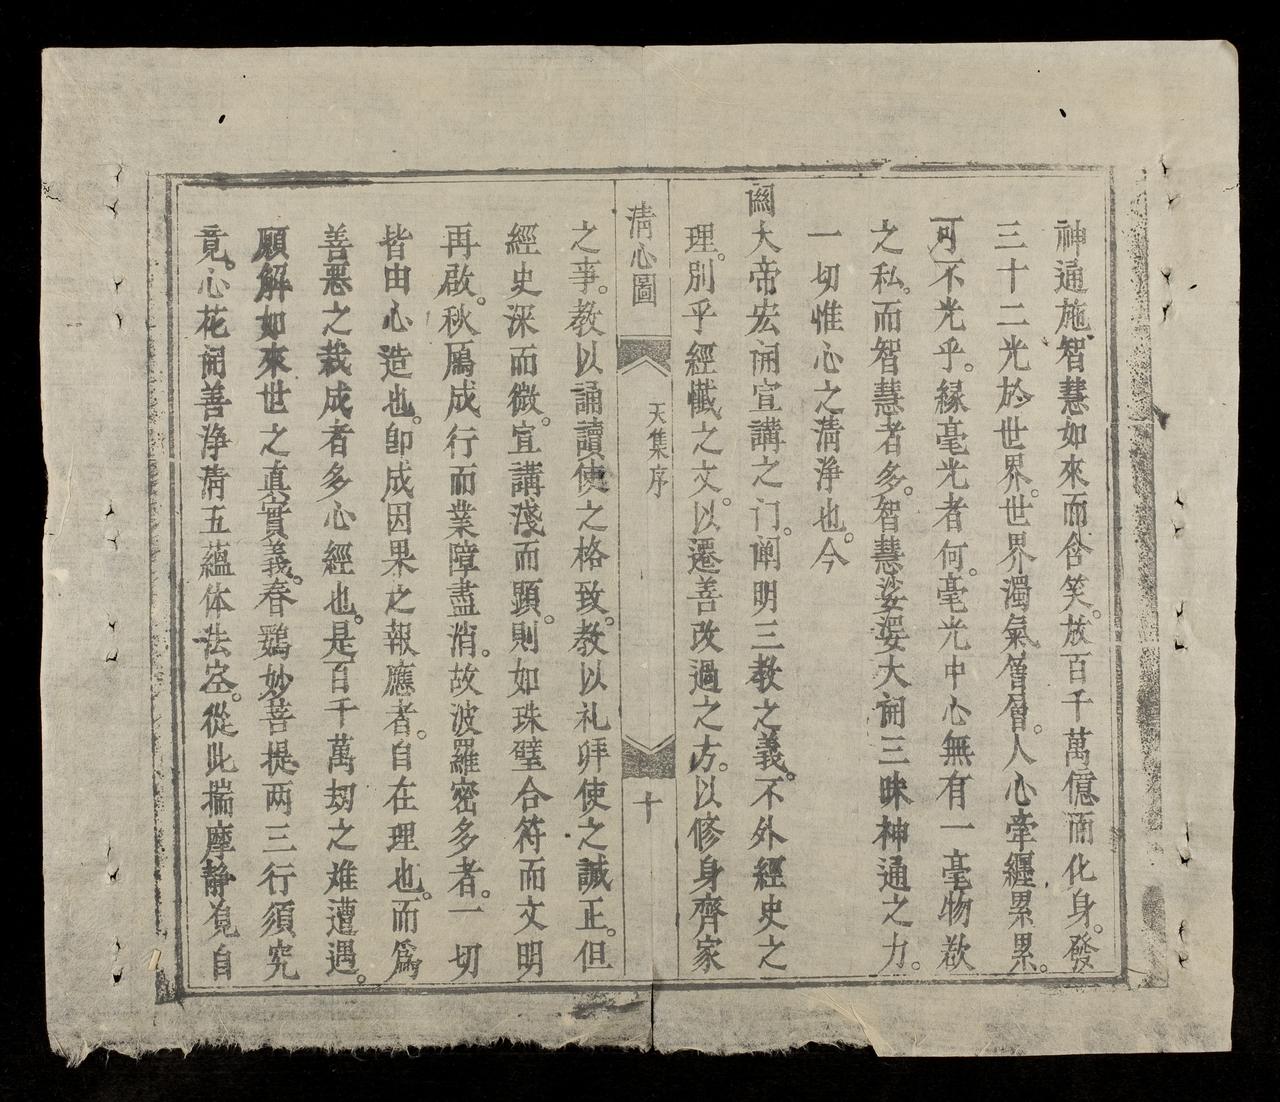 神通施智慧如來而含笑。放百千萬億而化身。發
三十二光於世界。世界濁氣層層。人心牽纏累累。
可不光乎。緣毫光者何。毫光中心無有一毫物欲
之私。而智慧者多。智慧娑婆大開三昧神通之力。
一切惟心之清淨也。今
關大帝宏開宣講之门。阐明三教之義。不外經史之
理。別乎經懺之文。以遷善改過之方。以修身齊家
清心圖
天集序
十
之事。教以誦讀使之格致。教以礼拜使之誠正。但
經史深而微。宣講淺而顯。則如珠璧合符而文明
再啟。秋鴈成行而業障盡消。故波羅密多者。一切
皆由心造也。即成因果之報應者。自在理也。而為
善惡之栽成者多心經也。是百千萬刼之难遭遇。
願解如來世之真實義。春鶏妙菩提两三行須究
竟。心花開善淨清五蘊体法空。從此揣摩靜覓自